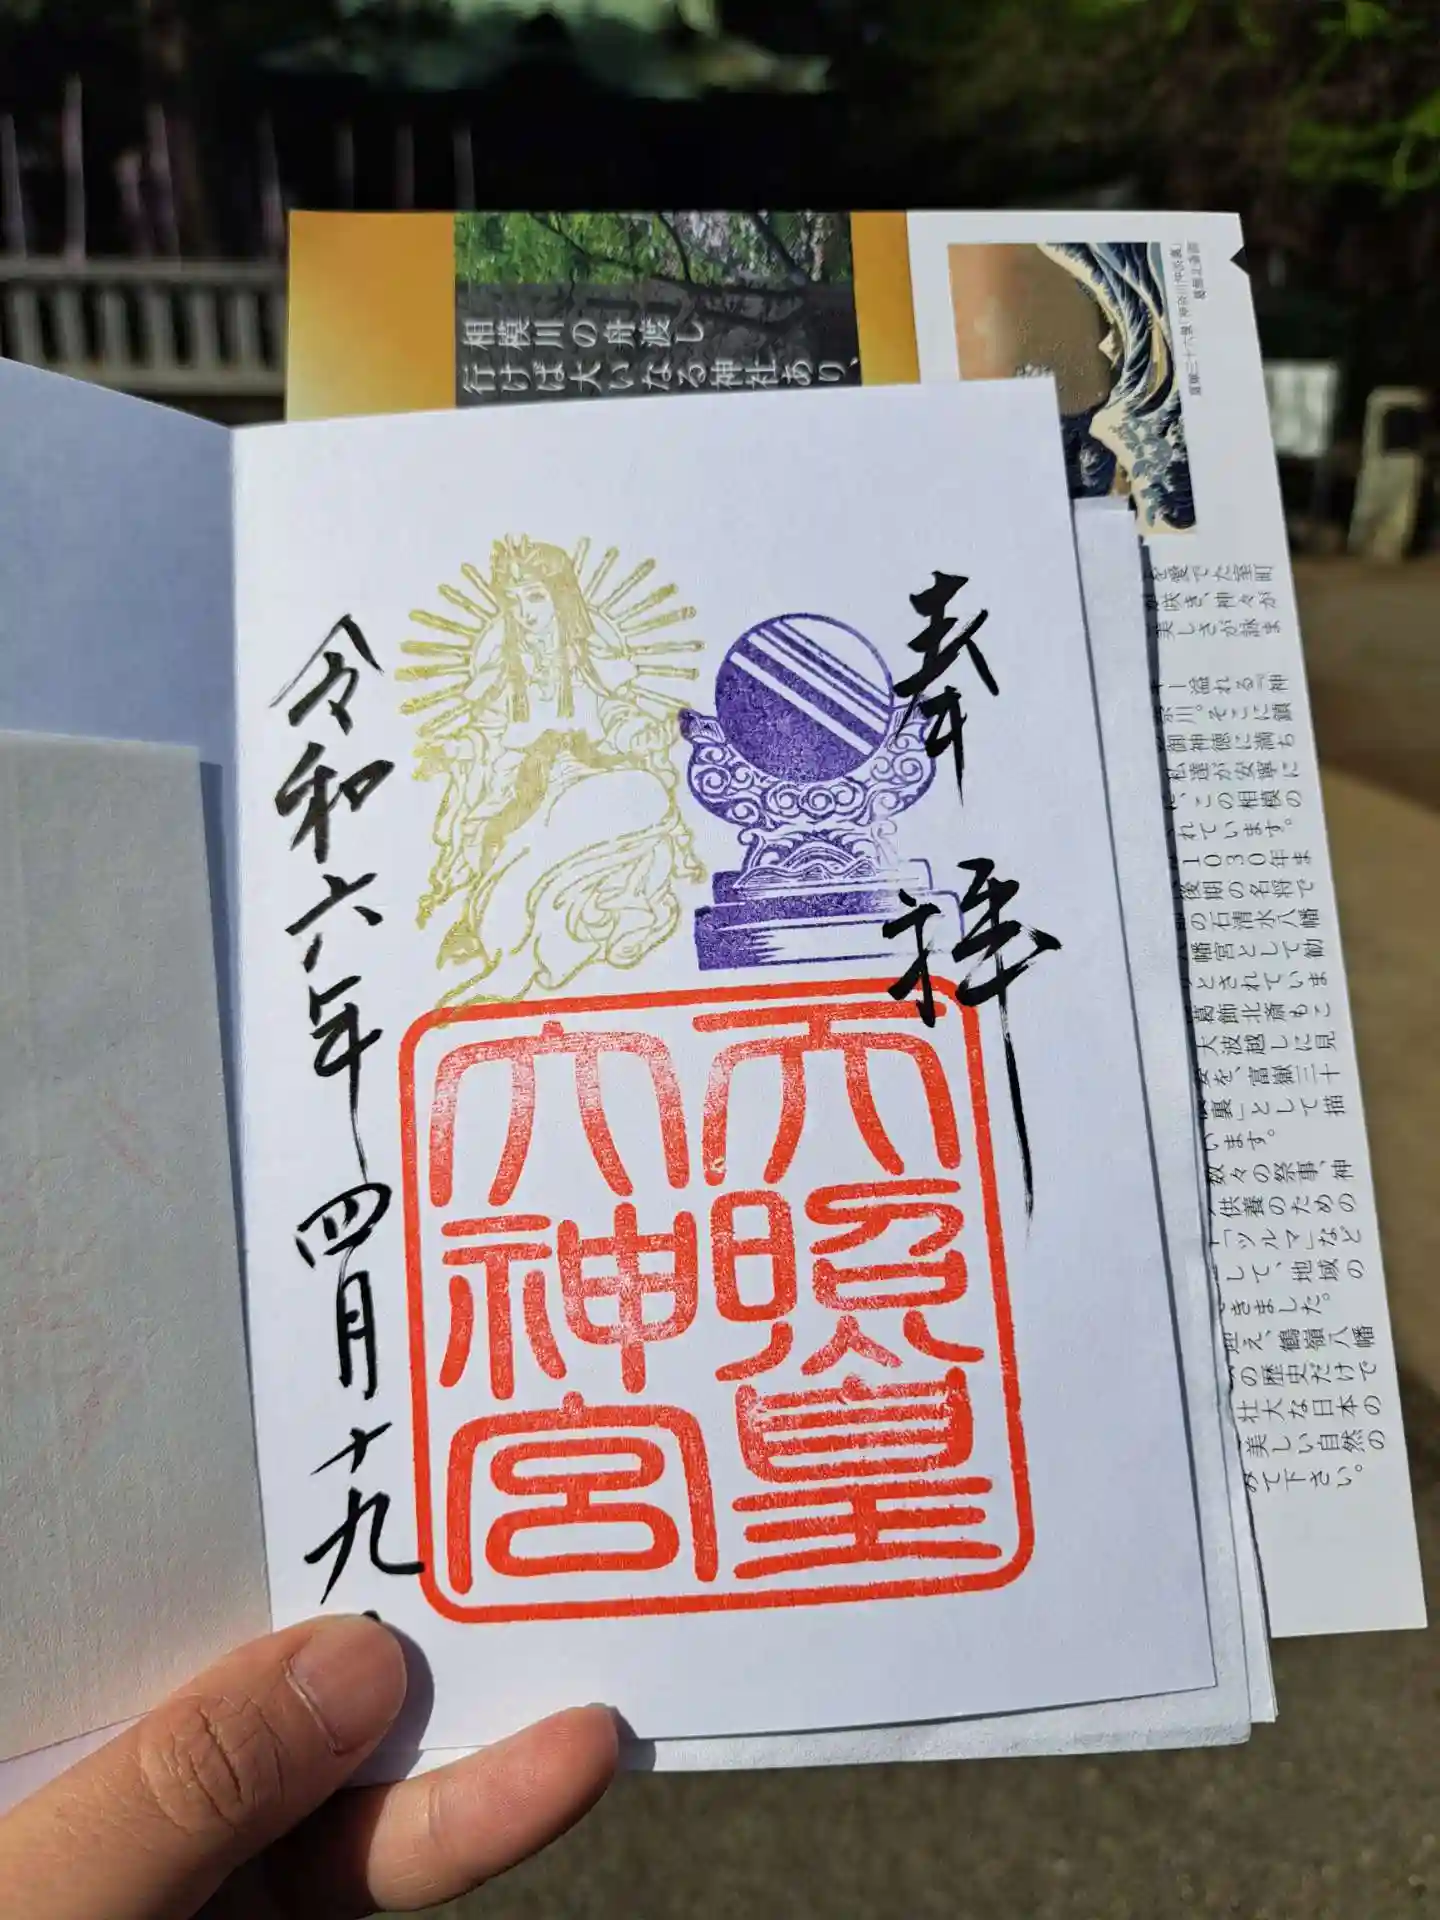 奉拝
天照皇
大神宮
令和六年四月十九
相模川の舟渡し
行けば大いなる神社あり、
を愛でた室町
咲き、神々が
美しさが詠ま
ー溢れる「神
奈川。そこに鎮
御神徳に満ち
私達が安寧に
、この相模の
れています。
1030年ま
後期の名将で
の石清水八幡
幡宮として勧
とされていま
葛飾北斎もこ
大波越しに見
姿を、富嶽三十
裏」として描
います。
数々の祭事、神
供養のための
「ツルマ」など
して、地域の
きました。
迎え、鶴嶺八幡
の歴史だけで
壮大な日本の
美しい自然の
みて下さい。